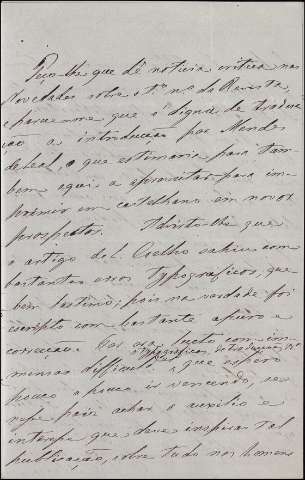 Peço-lhe que dê noticia critica nas
Novedades sobre o 1º nº da Revista,
e parece-me que é digna de traduc-
ção a introducção por Mendes
Leal, o que estimaria para tam-
bem aqui a aproveitar para im-
primir em castelhano em novos
prospectos. Advirto-lhe que
o artigo de Coelho sahiu com
bastantes erros typograficos, que
bem lastimo; pois na verdade foi
escripto com bastante apuro e
correcção. Por ora lucto com im-
mensas difficuldades typograficas, de traducção &ª
que espero
pouco a pouco ir vencendo, se
n'esse paiz achar o auxilio e
interesse que deve inspirar tal
publicação, sobre tudo nos homens